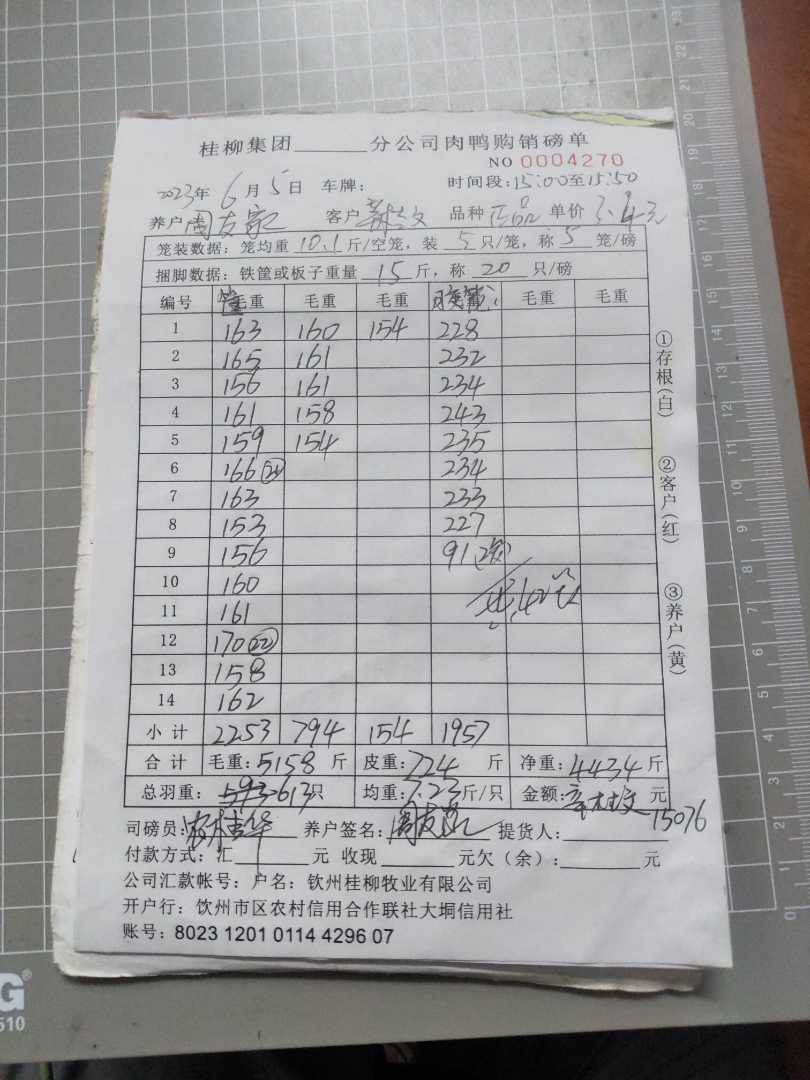 桂柳集团______分公司肉鸭购销磅单
NO 0004270
2023年 6月 5日 车牌: 时间段:15:00至15:50
养户 周友家 客户 品种 正品 单价 3.4元
笼装数据: 笼均重 10.1 斤/空笼, 装 5 只/笼, 称 5 笼/磅
捆脚数据: 铁筐或板子重量 15 斤, 称 20 只/磅
编号 毛重 毛重 毛重 毛重 毛重
1 163 160 154 228
2 165 161 232
3 156 161 234
4 161 158 243
5 159 154 235
6 166 (21) 234
7 163 233
8 153 227
9 156 91
10 160
11 161
12 170 (22)
13 158
14 162
小计 2253 794 154 1957
合计 毛重: 5158 斤 皮重: 724 斤 净重: 4434 斤
总羽重: 593 613 只 均重: 7.23 斤/只 金额: 元
15076
司磅员: 养户签名: 提货人:
付款方式: 汇______元 收现______元欠(余):______元
公司汇款帐号: 户名: 钦州桂柳牧业有限公司
开户行: 饮州市区农村信用合作联社大垌信用社
账号: 8023 1201 0114 4296 07
①存根(白)
②客户(红)
③养户(黄)
0
1
2
3
4
5
6
7
8
9
10
11
12
13
14
15
16
17
18
19
20
21
22
23
G
®
510